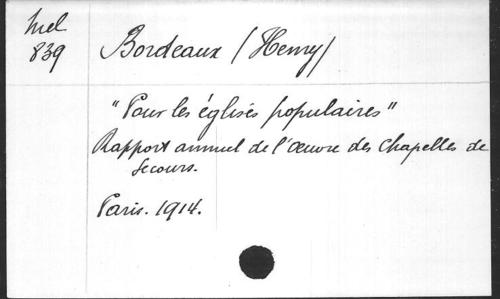 Mel
839
Bordeaux (Henry)
"Pour les églises populaires"
Rapport annuel de l'œuvre des Chapelles de
Secours.
Paris. 1914.